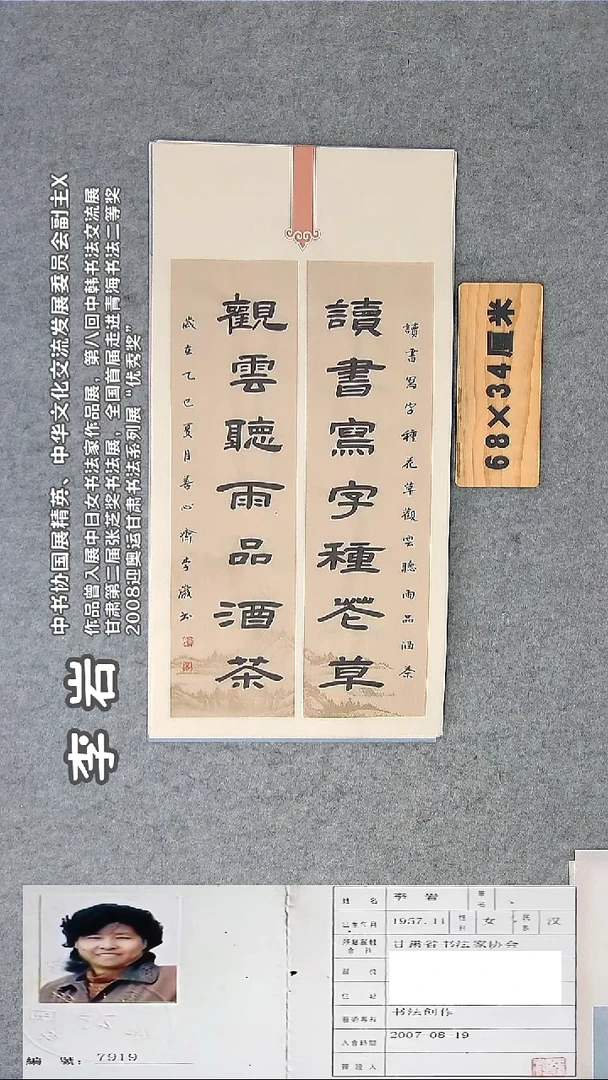 李岩
中书协国展精英、中华文化交流发展委员会副主X
作品曾入展中日女书法家作品展，第八回中韩书法交流展
甘肃第二届张芝奖书法展，全国首届走进青海书法二等奖
2008迎奥运甘肃书法系列展“优秀奖”
讀書寫字種花草觀雲聽雨品酒茶
讀書寫字種花草
觀雲聽雨品酒茶
歲在乙巳夏月善心齋李巖書
68×34厘米
姓名 李岩
1957.11 性别 女 民族 汉
甘肃省书法家协会
单位
住址
书法创作
入會時間 2007-08-19
簽證人
編號：7919